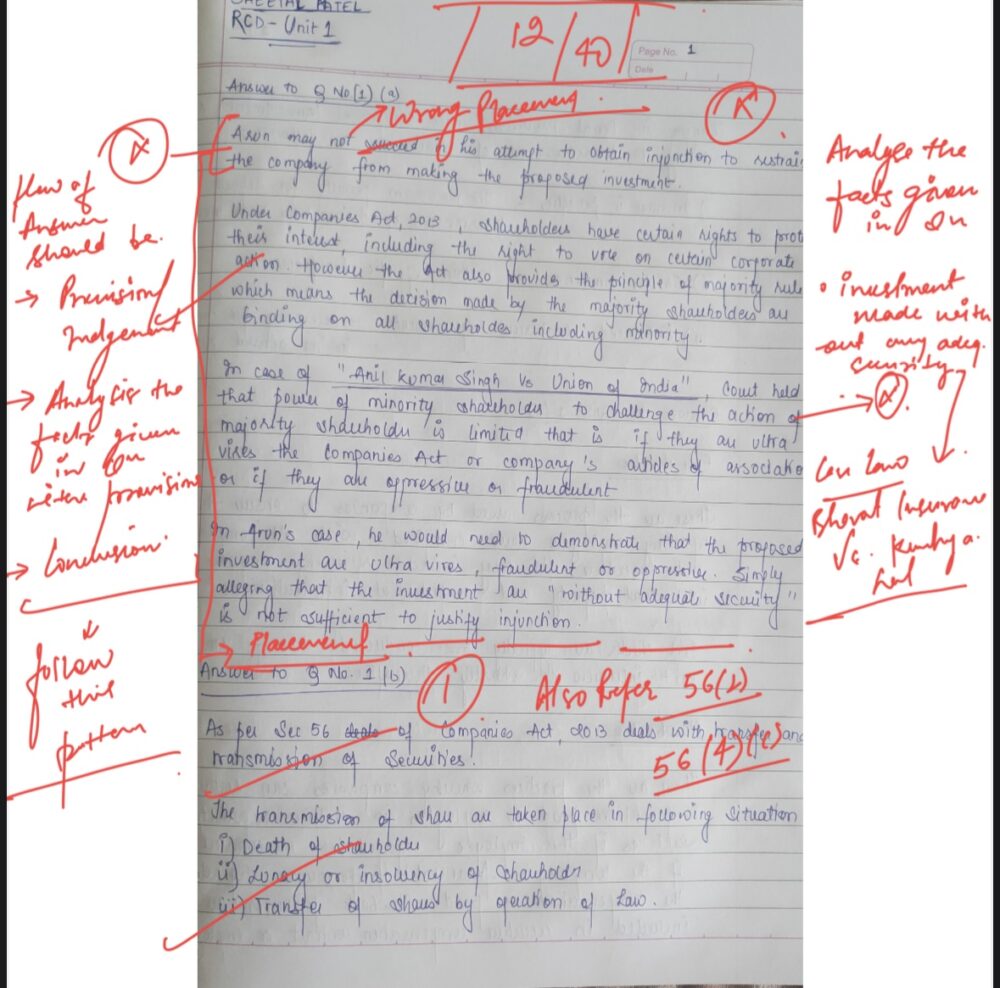 SHEETAL PATEL
RCD - Unit 1
12/40
Page No. 1
Date
Answer to Q No (1) (a)
Wrong Placement.
Arun may not succeed in his attempt to obtain injunction to restrain
the company from making the proposed investment.
Under Companies Act, 2013, shareholders have certain rights to prot
their interest, including the right to vote on certain corporate
action. However the Act also provides the principle of majority rule
which means the decision made by the majority shareholders are
binding on all shareholdes including minority.
In case of "Anil Kumar Singh Vs Union of India", Court held
that power of minority shareholder to challenge the action of
majority shareholder is limited that is if they are ultra
vires the Companies Act or company's articles of associatio
or if they are oppressive or fraudulent
In Arun's case, he would need to demonstrate that the proposed
investment are ultra vires, fraudulent or oppressive. Simply
alleging that the investment are "without adequate security"
is not sufficient to justify injunction.
Placement
flow of
Answer
should be.
→ Provision/
Judgement
→ Analysis the
facts given
in Qn
with provision
→ Conclusion.
follow
this
pattern
Analyse the
facts given
in Qn
• investment
made with
out any adeq.
security
Case Law
Bharat Insurance
Vs. Kanhya
Lal
Answer to Q No. 1 (b)
1
Also Refer 56(2)
56(4)(c)
As per Sec 56 of Companies Act, 2013 deals with transfer and
transmission of securities.
The transmission of share are taken place in following situation
i) Death of shareholder
ii) Lunacy or insolvency of shareholder
iii) Transfer of shares by operation of Law.